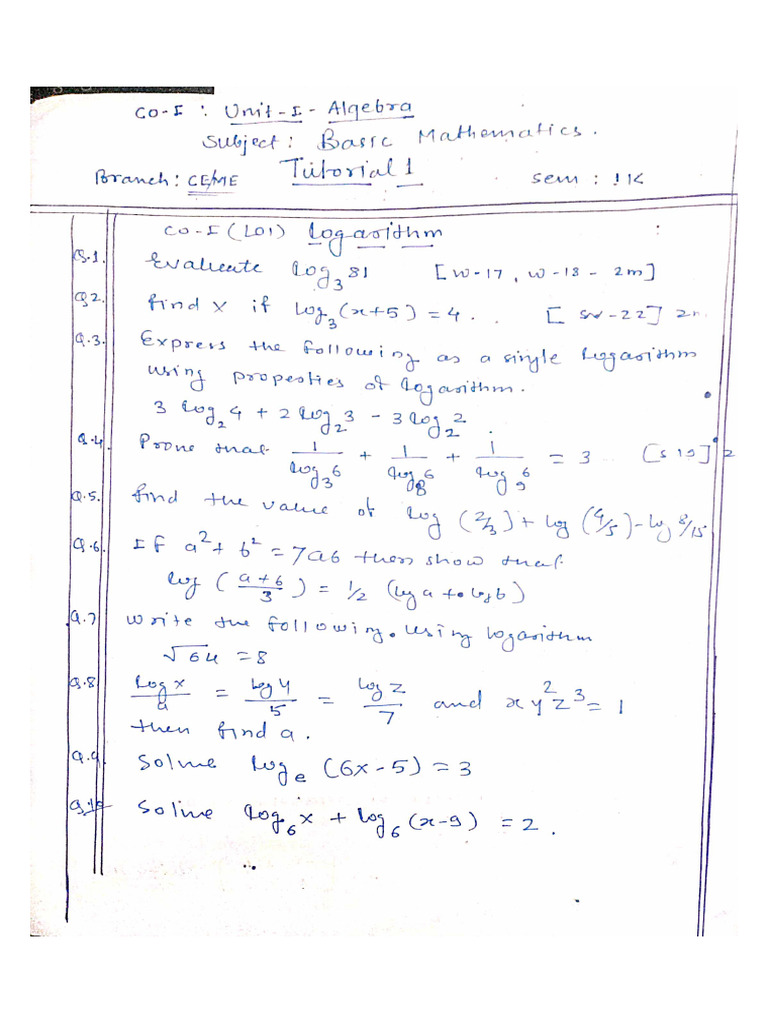 CO-I : Unit-I - Algebra
Subject: Basic Mathematics.
Branch: CE/ME Tutorial 1 Sem: I K
CO-I (LO1) Logarithm
Q.1. Evaluate log₃ 81 [W-17, W-18 - 2m]
Q2. find x if log₃ (x+5) = 4. [SW-22] 2m
Q.3. Express the following as a single logarithm
using properties of logarithm.
3 log₂ 4 + 2 log₂ 3 - 3 log₂ 2
Q.4. Prove that 1/log₃ 6 + 1/log₈ 6 + 1/log₉ 6 = 3 [S 19] 2
Q.5. find the value of log (2/3) + log (4/5) - log 8/15
Q.6. If a² + b² = 7ab then show that
log (a+b/3) = 1/2 (log a + log b)
Q.7 Write the following using logarithm
√64 = 8
Q.8 log x/a = log y/5 = log z/7 and x y² z³ = 1
then find a.
Q.9. Solve logₑ (6x-5) = 3
Q.10 Solve log₆ x + log₆ (x-9) = 2.